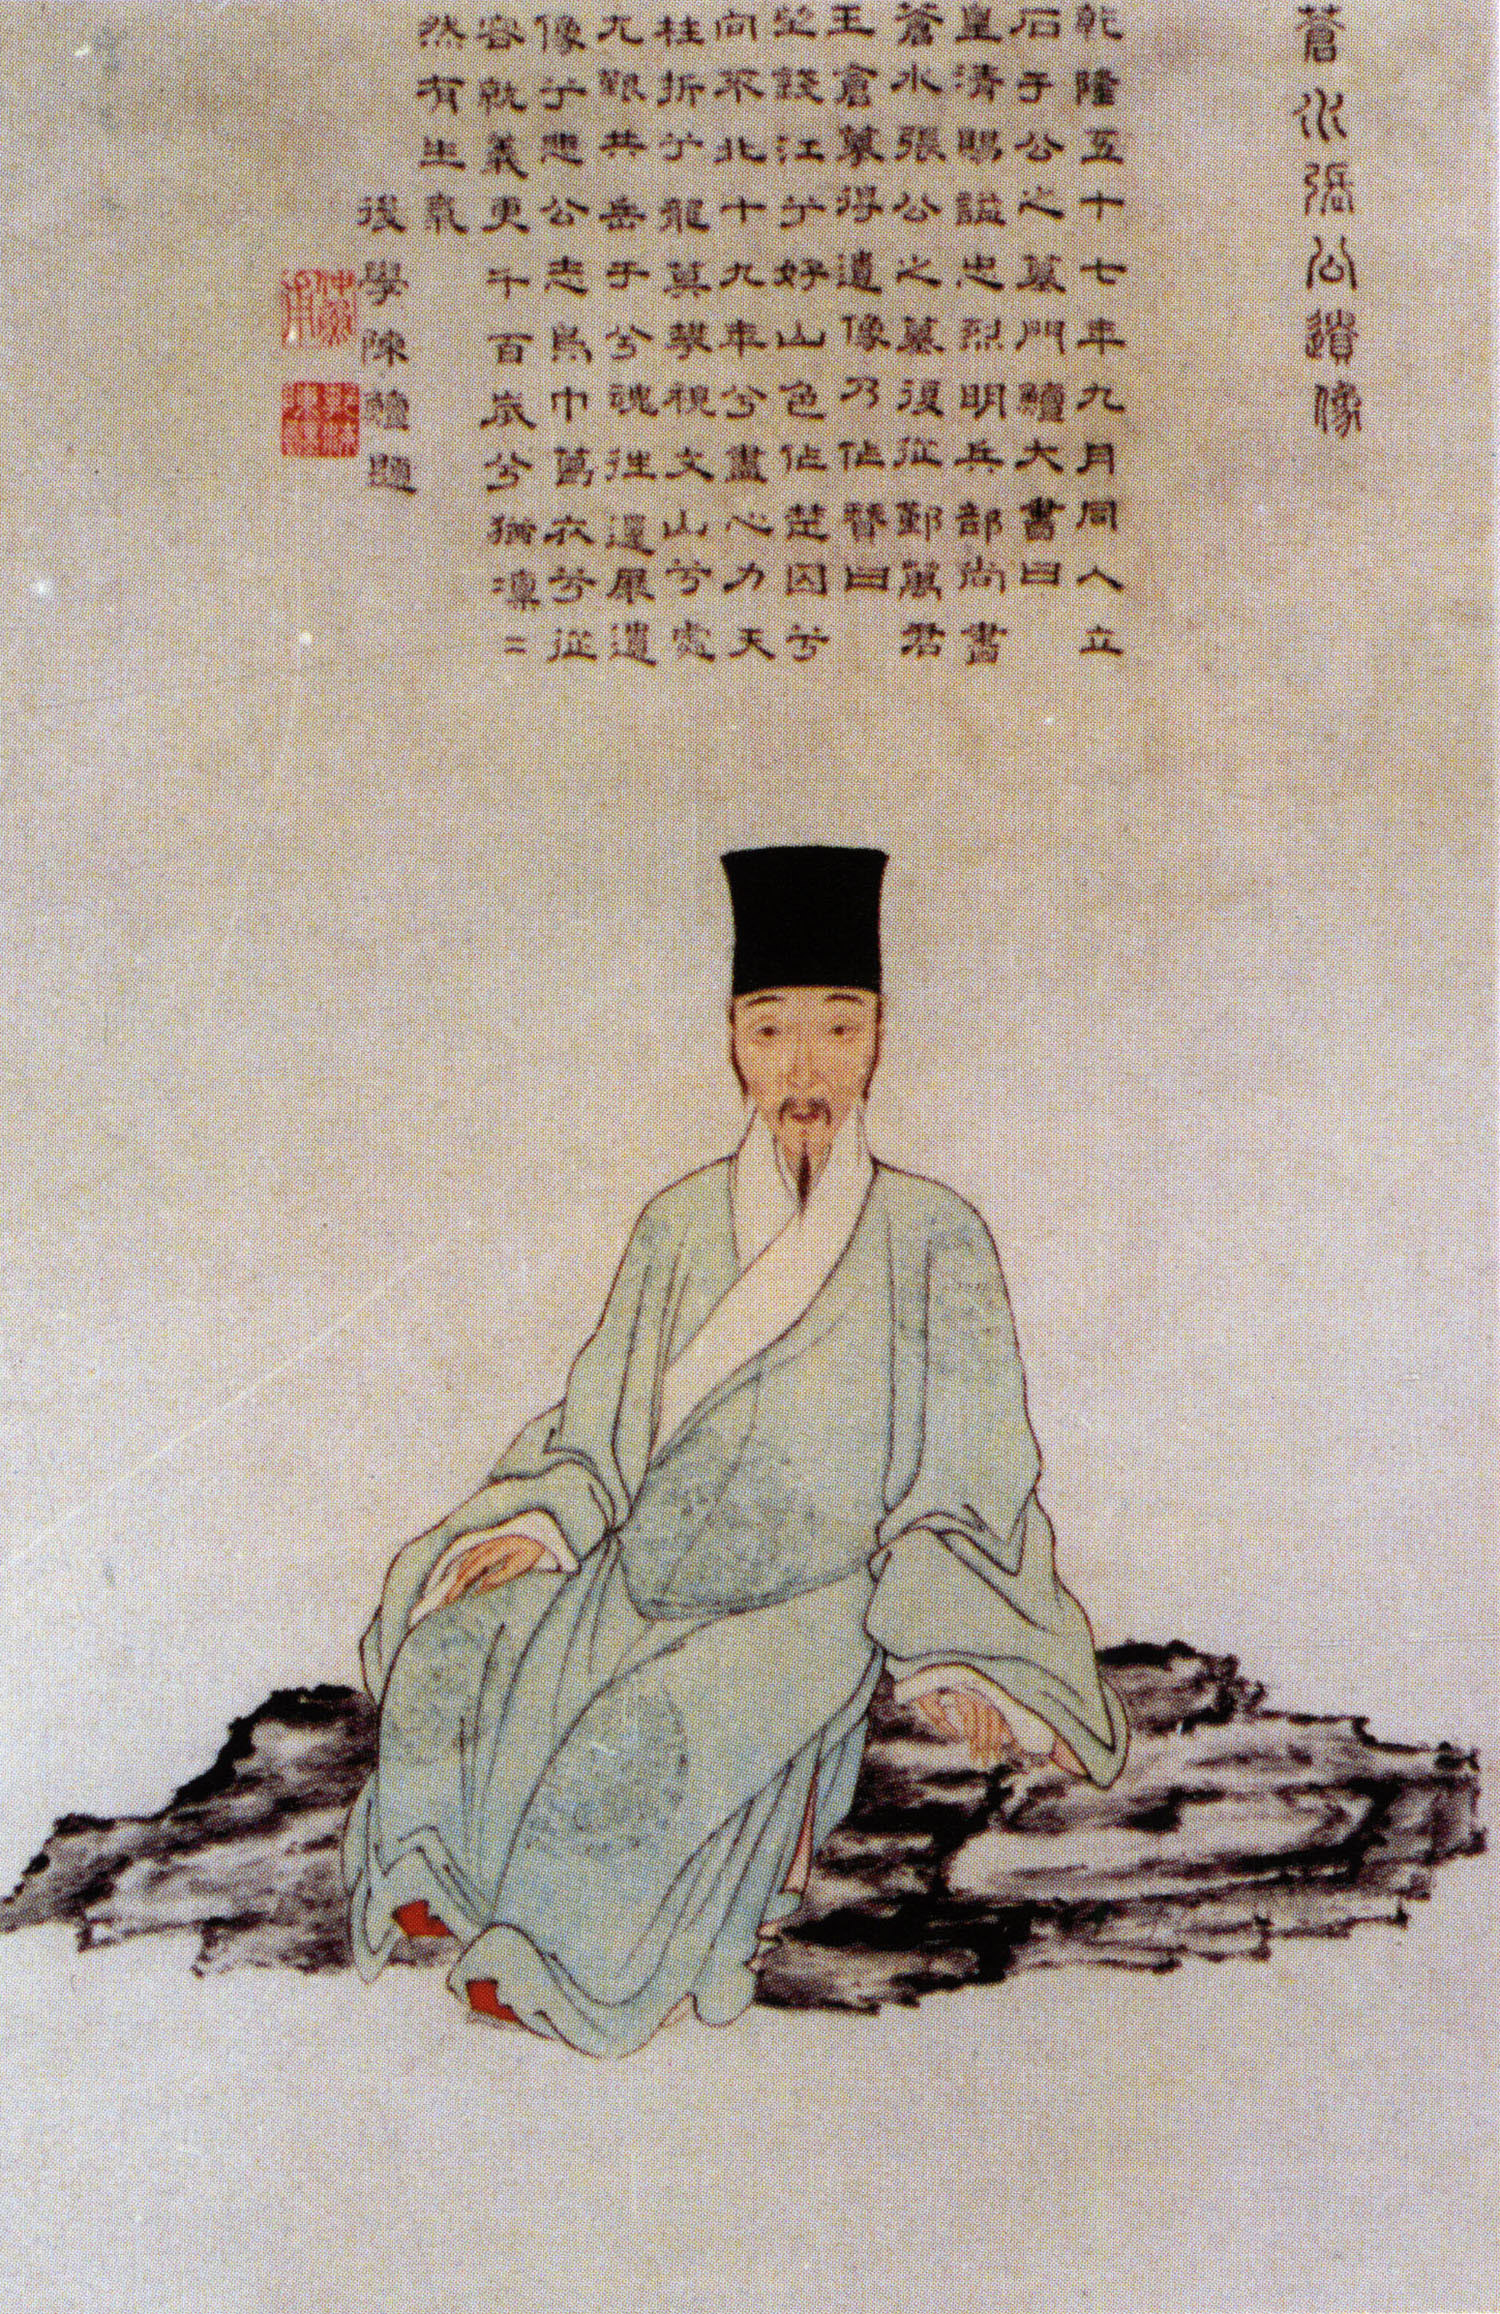 蒼水張公遺像
乾隆五十七年九月同人立
石于公之墓門鱣大書曰
皇清賜謚忠烈明兵部尚書
蒼水張公之墓復從鄞萬君
王倉摹得遺像乃作贊曰
望錢江兮好山色作楚囚兮
向來北十九年兮盡心力天
柱折兮龍莫攀視文山兮處
尤艱共岳于兮魂往還展遺
像兮悲公志烏巾葛衣兮從
容就義更千百歲兮猶凜二
然有生氣
後學陳鱣題